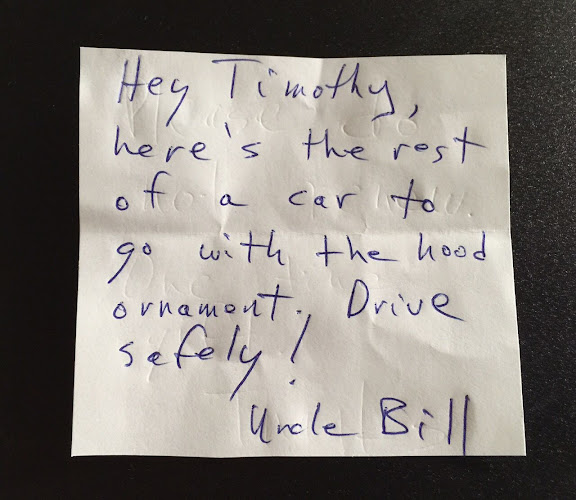 Hey Timothy,
here's the rest
of a car to
go with the hood
ornament. Drive
safely!
Uncle Bill